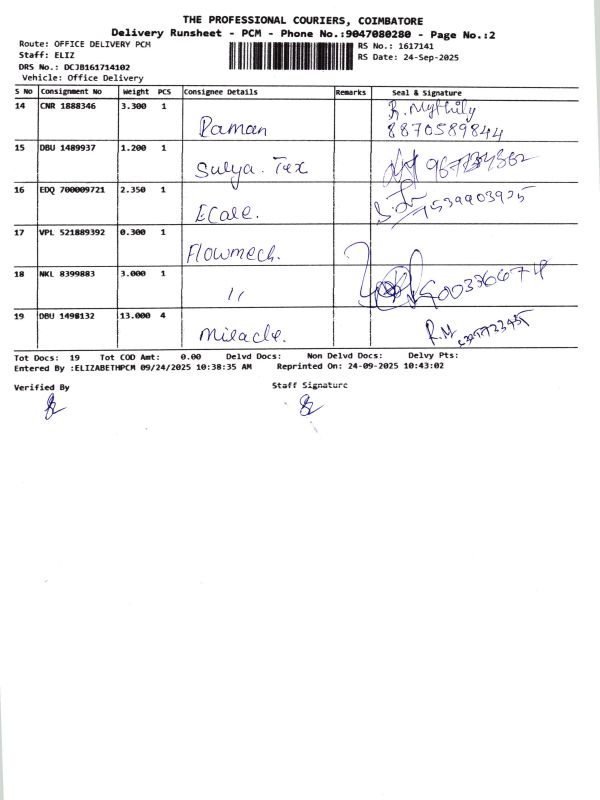 THE PROFESSIONAL COURIERS, COIMBATORE
Delivery Runsheet - PCM - Phone No.:9047080280 - Page No.:2
Route: OFFICE DELIVERY PCM
Staff: ELIZ
DRS No.: DCJB161714102
Vehicle: Office Delivery
RS No.: 1617141
RS Date: 24-Sep-2025
S No Consignment No Weight PCS Consignee Details Remarks Seal & Signature
14 CNR 1888346 3.300 1 Raman R. Mythily
8870589844
15 DBU 1489937 1.200 1 Surya. Tex
16 EDQ 700009721 2.350 1 Ecare.
17 VPL 521889392 0.300 1 Flowmech.
18 NKL 8399883 3.000 1 "
19 DBU 1498132 13.000 4 Miracle. R.M
Tot Docs: 19 Tot COD Amt: 0.00 Delvd Docs: Non Delvd Docs: Delvy Pts:
Entered By :ELIZABETHPCM 09/24/2025 10:38:35 AM Reprinted On: 24-09-2025 10:43:02
Verified By Staff Signature